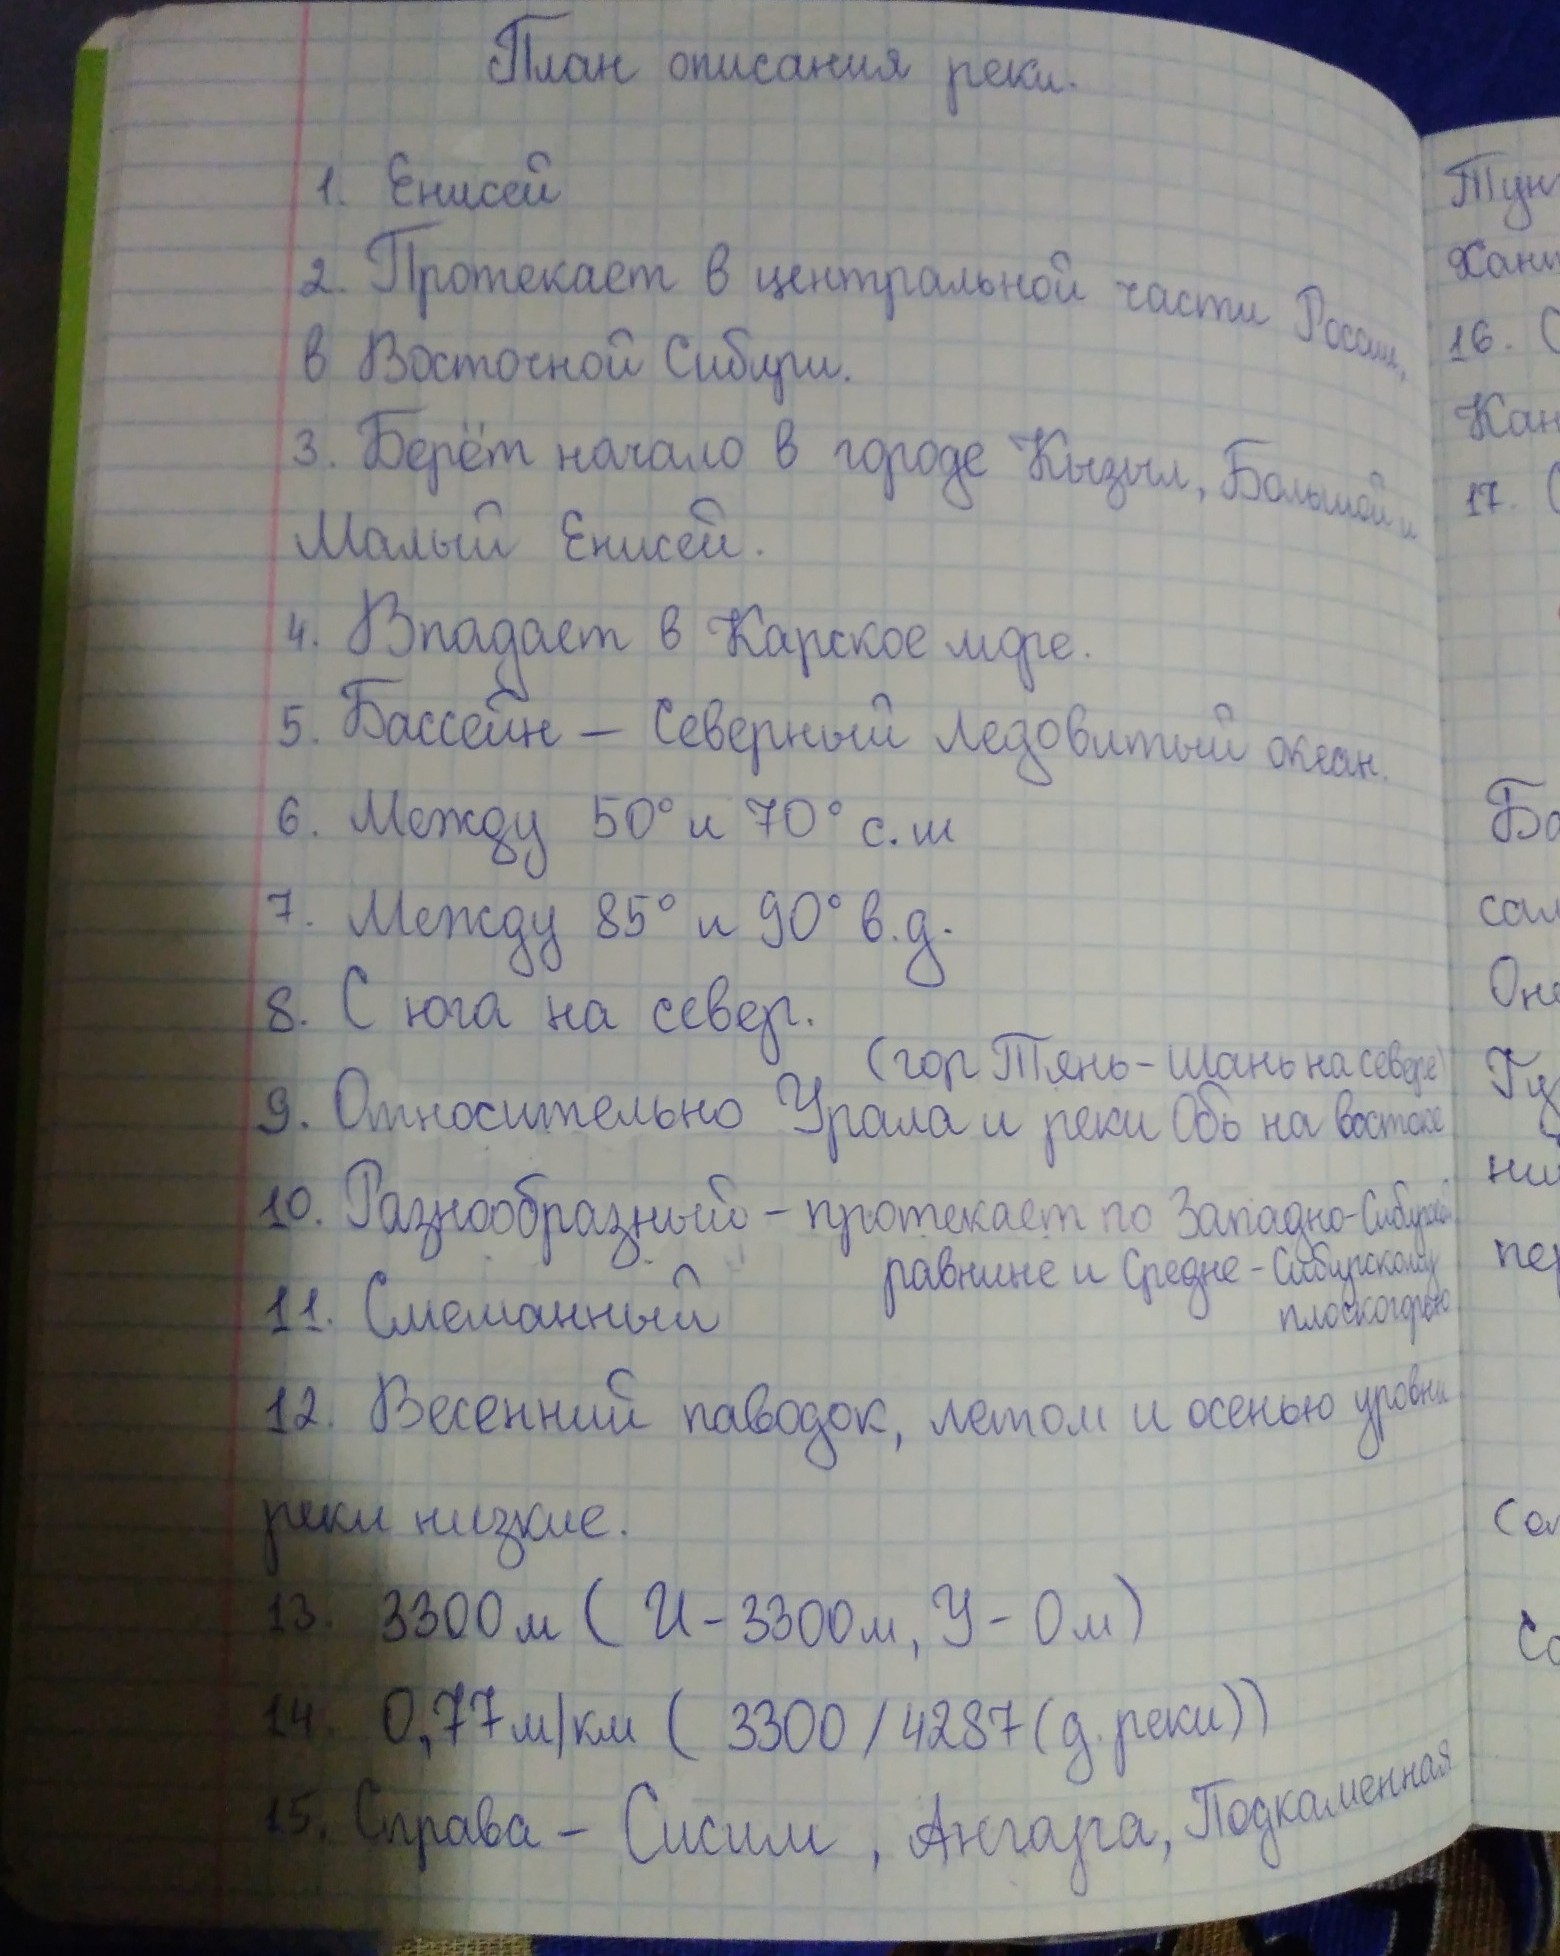 План описания реки.
1. Енисей
2. Протекает в центральной части России,
в Восточной Сибири.
3. Берёт начало в городе Кызыл, Большой и
Малый Енисей.
4. Впадает в Карское море.
5. Бассейн – Северный Ледовитый океан.
6. Между 50° и 70° с.ш
7. Между 85° и 90° в.д.
8. С юга на север.
(гор Тянь-Шань на севере)
9. Относительно Урала и реки Обь на востоке
10. Разнообразный – протекает по Западно-Сибирской
равнине и Средне-Сибирскому
плоскогорью
11. Смешанный
12. Весенний паводок, летом и осенью уровни
реки низкие.
13. 3300 м ( И – 3300м, У – 0 м )
14. 0,77 м/км ( 3300 / 4287 (д. реки))
15. Справа – Сисим, Ангара, Подкаменная
16.
17.